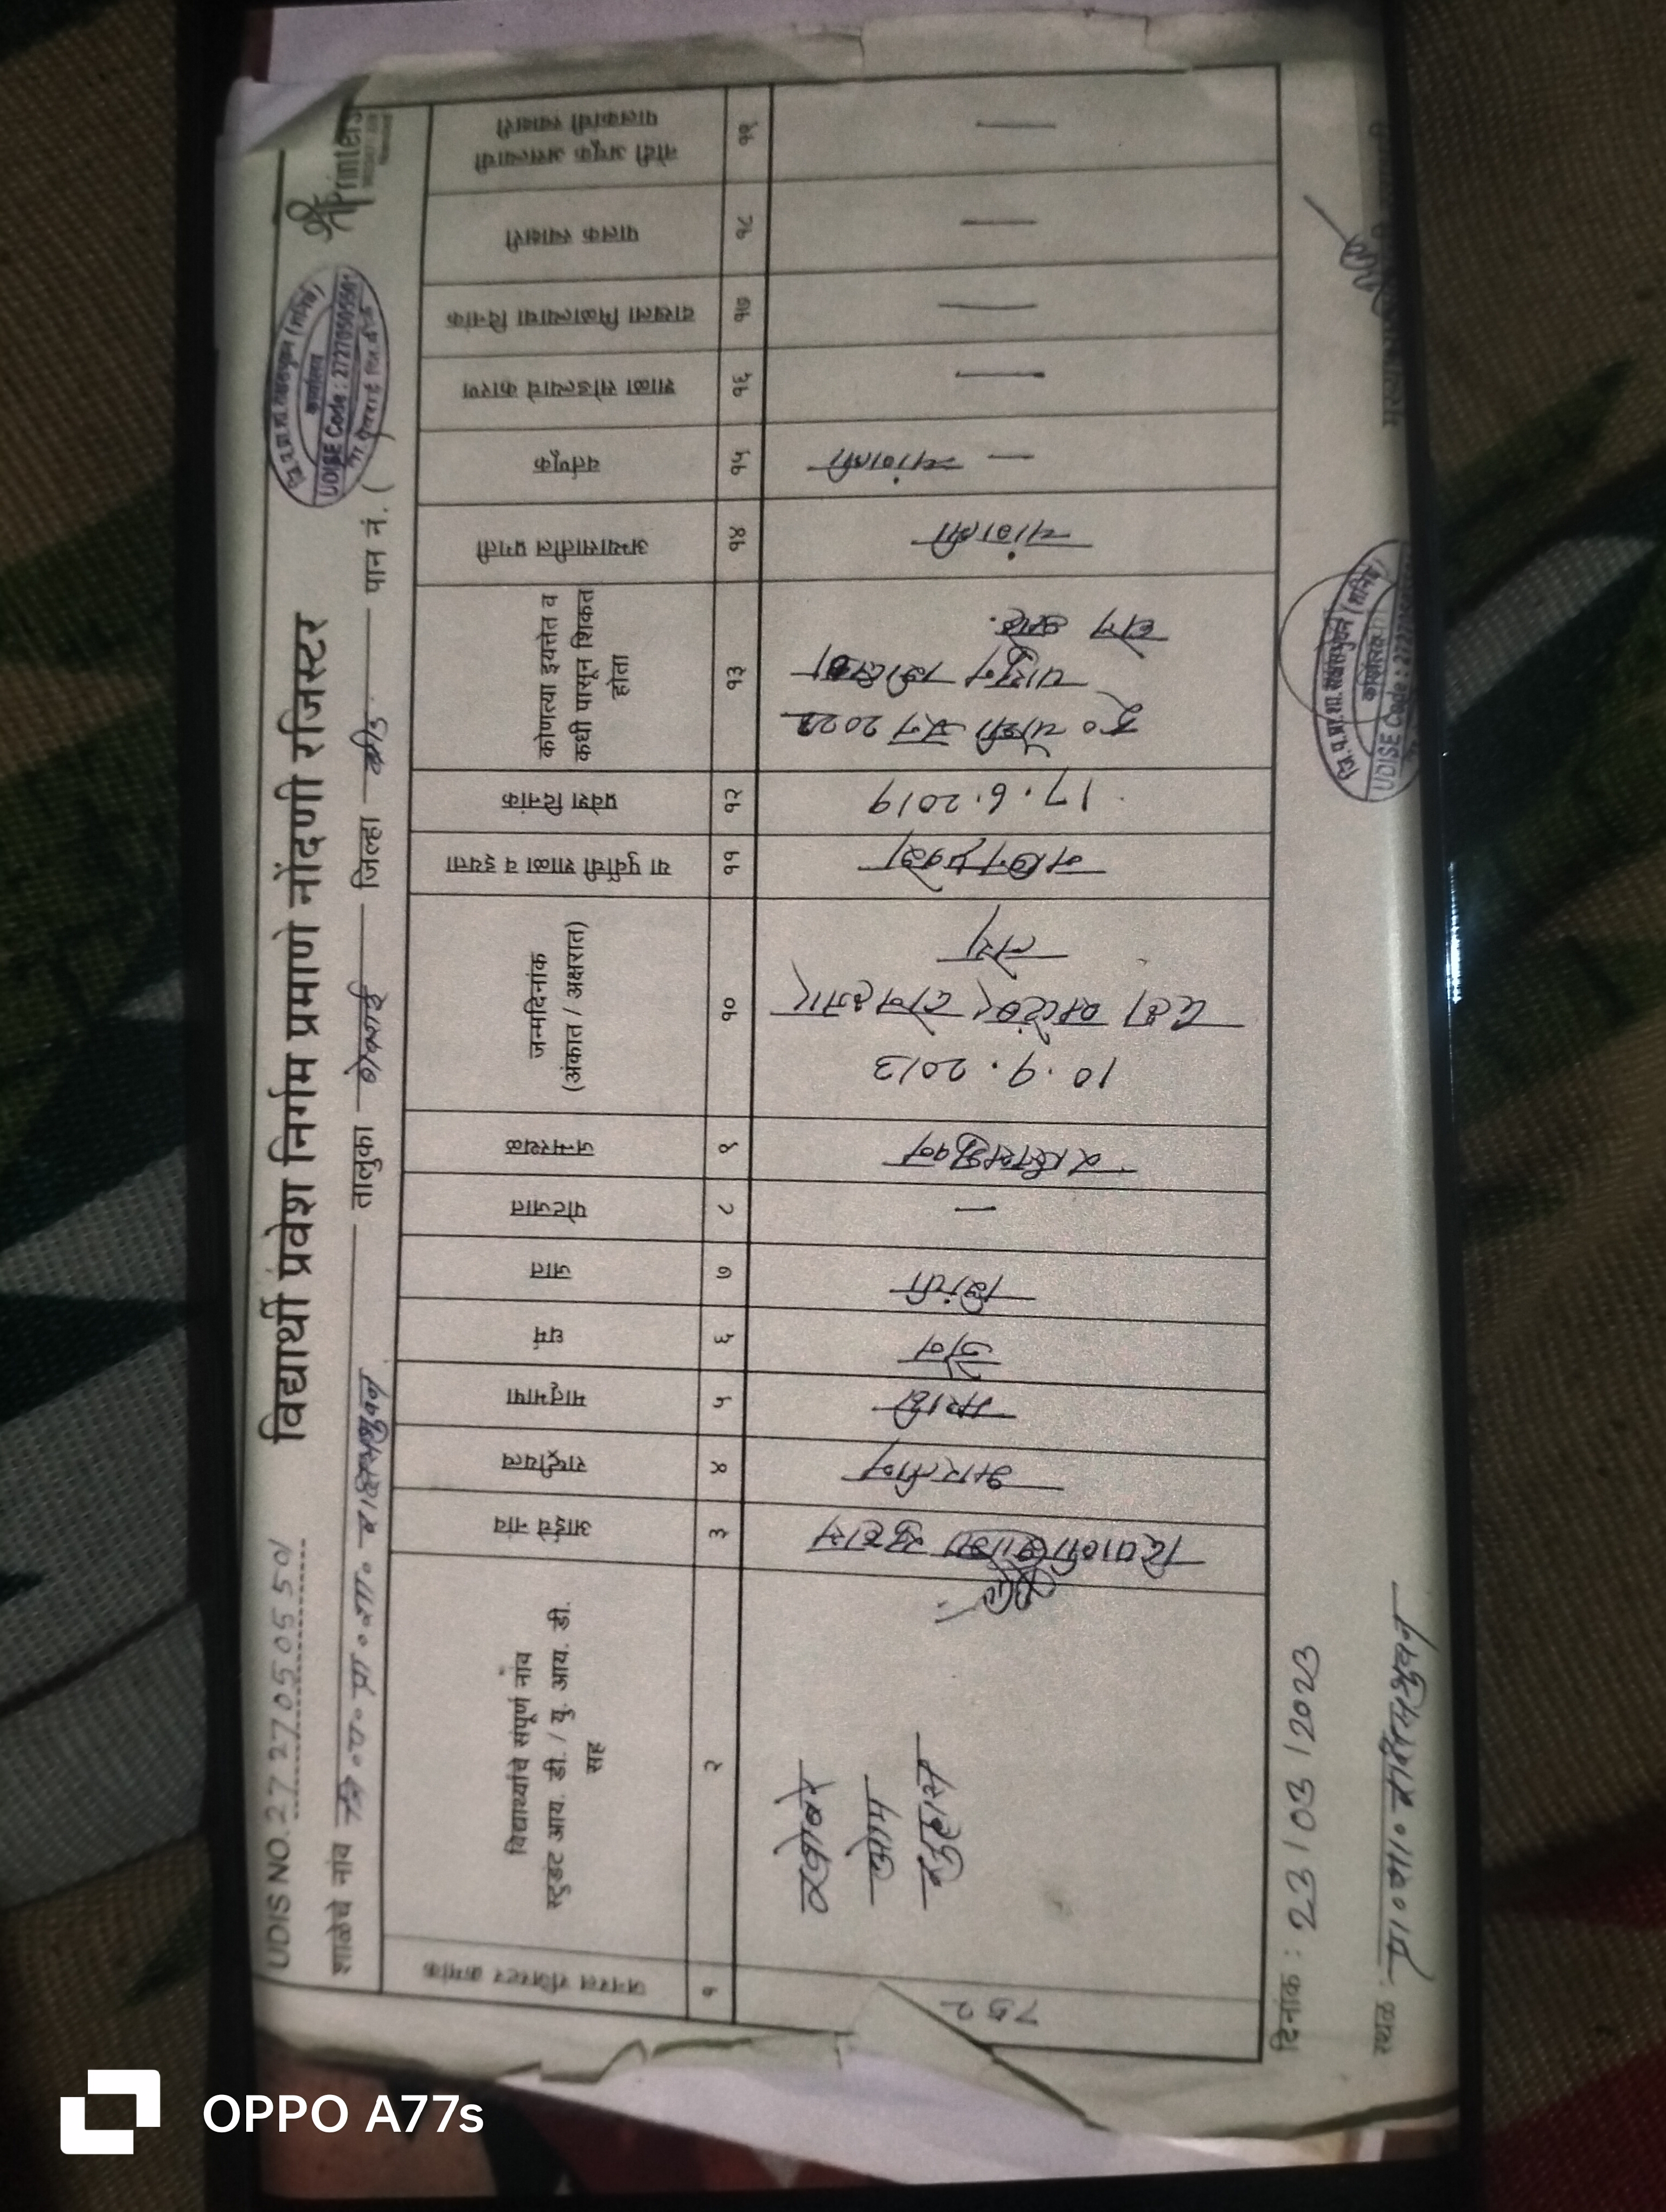 UDIS NO. 27270505501
विद्यार्थी प्रवेश निर्गम प्रमाणे नोंदणी रजिस्टर
Printers
शाळेचे नांव जि. प. प्रा. शा. राक्षसभुवन तालुका गेवराई जिल्हा बीड पान नं. (
जि.प.प्रा.शा. राक्षसभुवन (शनिचे)
कार्यालय
UDISE Code : 27270505501
ता. गेवराई जि. बीड
जनरल रजिस्टर क्रमांक
विद्यार्थ्याचे संपूर्ण नांव
स्टुडंट आय. डी. / यु. आय. डी.
सह
आईचे नांव
राष्ट्रीयत्व
मातृभाषा
धर्म
जात
पोटजात
जन्मस्थळ
जन्मदिनांक
(अंकात / अक्षरात)
या पुर्वीची शाळा व इयत्ता
प्रवेश दिनांक
कोणत्या इयत्तेत व
कधी पासून शिकत
होता
अभ्यासातील प्रगती
वर्तणूक
शाळा सोडल्याचे कारण
दाखला मिळाल्याचा दिनांक
पालक स्वाक्षरी
नोंदी अचूक असल्याची
पालकांची स्वाक्षरी
१ २ ३ ४ ५ ६ ७ ८ ९ १० ११ १२ १३ १४ १५ १६ १७ १८ १९
752
सुहास
भारतीय
मराठी
जैन
—
राक्षसभुवन
10.9.2013
दहा सप्टेंबर दोन हजार
तेरा
नविन प्रवेश
17.6.2019
इ० चौथी जुन 2022
पासुन शिकत
होत आहे.
चांगली
चांगली
—
—
—
—
—
दिनांक : 23/03/2023
स्थळ प्रा० शा० राक्षसभुवन
जि.प.प्रा.शा. राक्षसभुवन (शनिचे)
कार्यालय
UDISE Code : 27270505501
OPPO A77s